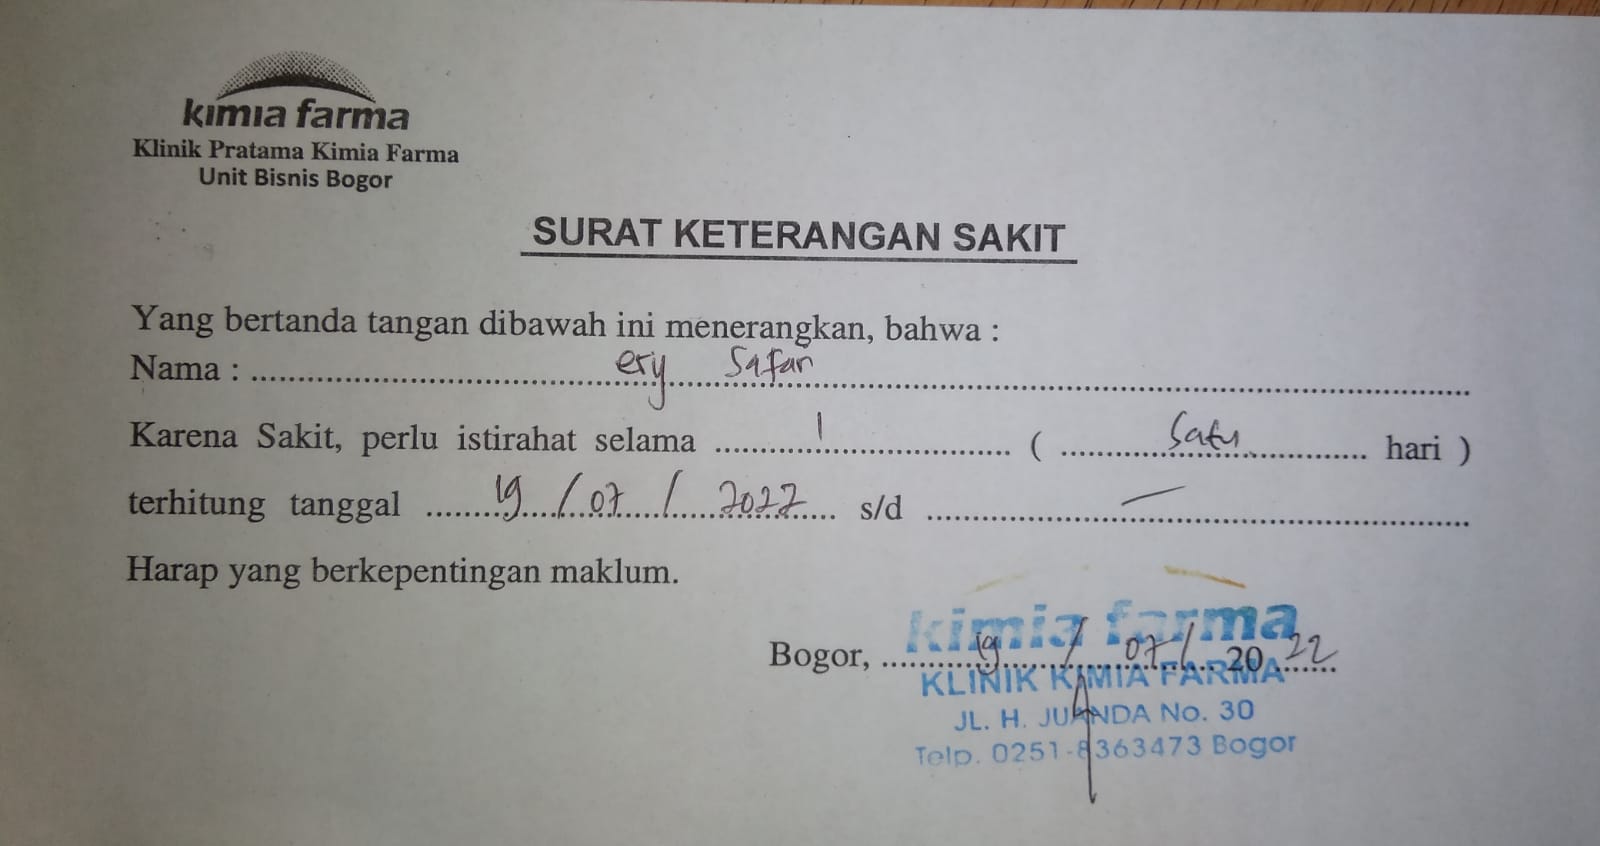 kimia farma
Klinik Pratama Kimia Farma
Unit Bisnis Bogor
SURAT KETERANGAN SAKIT
Yang bertanda tangan dibawah ini menerangkan, bahwa :
Nama : ery Safari
Karena Sakit, perlu istirahat selama 1 ( Satu hari )
terhitung tanggal 19 / 07 / 2022 s/d —
Harap yang berkepentingan maklum.
kimia farma
Bogor, 19 / 07 / 2022
KLINIK KIMIA FARMA
JL. H. JUANDA No. 30
Telp. 0251-8363473 Bogor